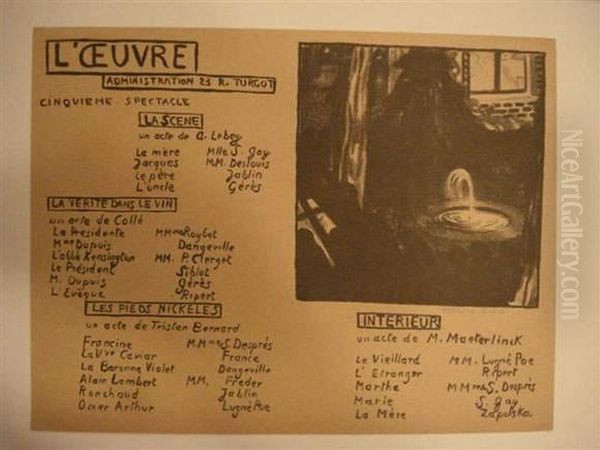 L'ŒUVRE
ADMINISTRATION 23 R. TURGOT
CINQUIEME SPECTACLE
LA SCENE
un acte de A. Lebey
La mère Mlle S. Gay
Jacques MM. Deslouis
Le père Jablin
L'oncle Gérès
LA VERITE DANS LE VIN
un acte de Collé
La Présidente MMmes Roybet
Mme Dupuis Dangeville
L'abbé Kensington MM. P. Clerget
Le Président Siblot
M. Dupuis Gérès
L'Evêque Ripert
LES PIEDS NICKELES
un acte de Tristan Bernard
Francine MMmes S. Després
La Vve Caviar France
La Baronne Violet Dangeville
Alain Lambert MM. Freder
Ronchaud Jablin
Omer Arthur Lugné Poe
INTERIEUR
un acte de M. Maeterlinck
Le Vieillard MM. Lugné Poe
L'Etranger Ripert
Marthe MMmes S. Després
Marie S. Gay
La Mère Zapolska
NiceArtGallery.com